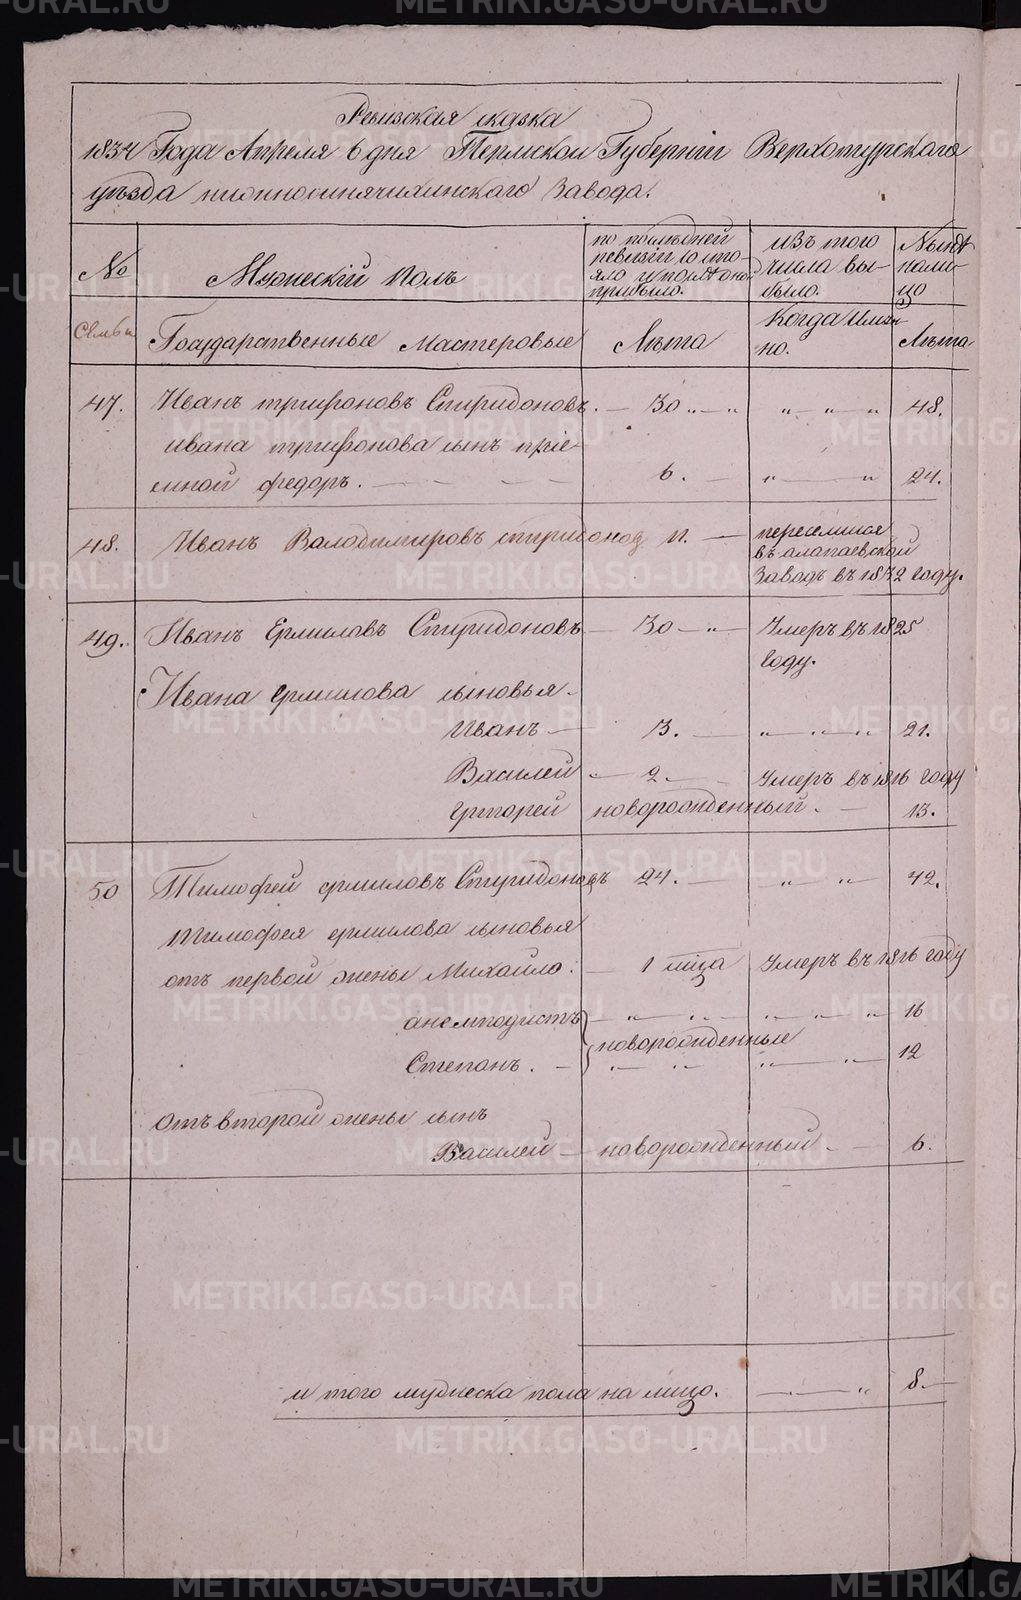 Ревизская сказка
1834 Года Апреля 6 дня Пермской Губернїи Верхотурского
уѣзда нижносинячихинского Завода.
№
Мужескїй полъ
по последней
ревизїи состо-
яло и после оной
прибыло.
изъ того
числа вы-
было.
Ныне
нали-
цо
Семьи
Государственные мастеровые
Лѣта
Когда имян-
но.
Лѣта
47. Иванъ трифоновъ Спиридоновъ. — 30 „ — „ „ — „ — „ 48.
ивана трифонова сынъ прїе-
мной федоръ. — — — — 6. — „ — — „ 24.
48. Иванъ Володимировъ спиридонов 11. — переселился
въ алапаевской
Заводъ въ 1832 году.
49. Иванъ Ермиловъ Спиридоновъ — 30 — „ — Умеръ въ 1825
году.
Ивана ермилова сыновья —
Иванъ — 3. — „ — „ — „ 21.
Василей — 2 — Умеръ въ 1816 году
Григорей новорожденный. — 13.
50 Тимофей ермиловъ Спиридоновъ 24. — „ — „ 42.
тимофея ермилова сыновья
отъ первой жены Михайло: — 1 мца Умеръ въ 1816 году
анемподистъ — „ — „ — „ — „ — „ 16
новорожденные
Степанъ. — „ — „ — „ — „ 12
отъ второй жены сынъ
Василей — новорожденный. — 6.
и того мужеска пола на лицо. — — „ 8. —
METRIKI.GASO-URAL.RU